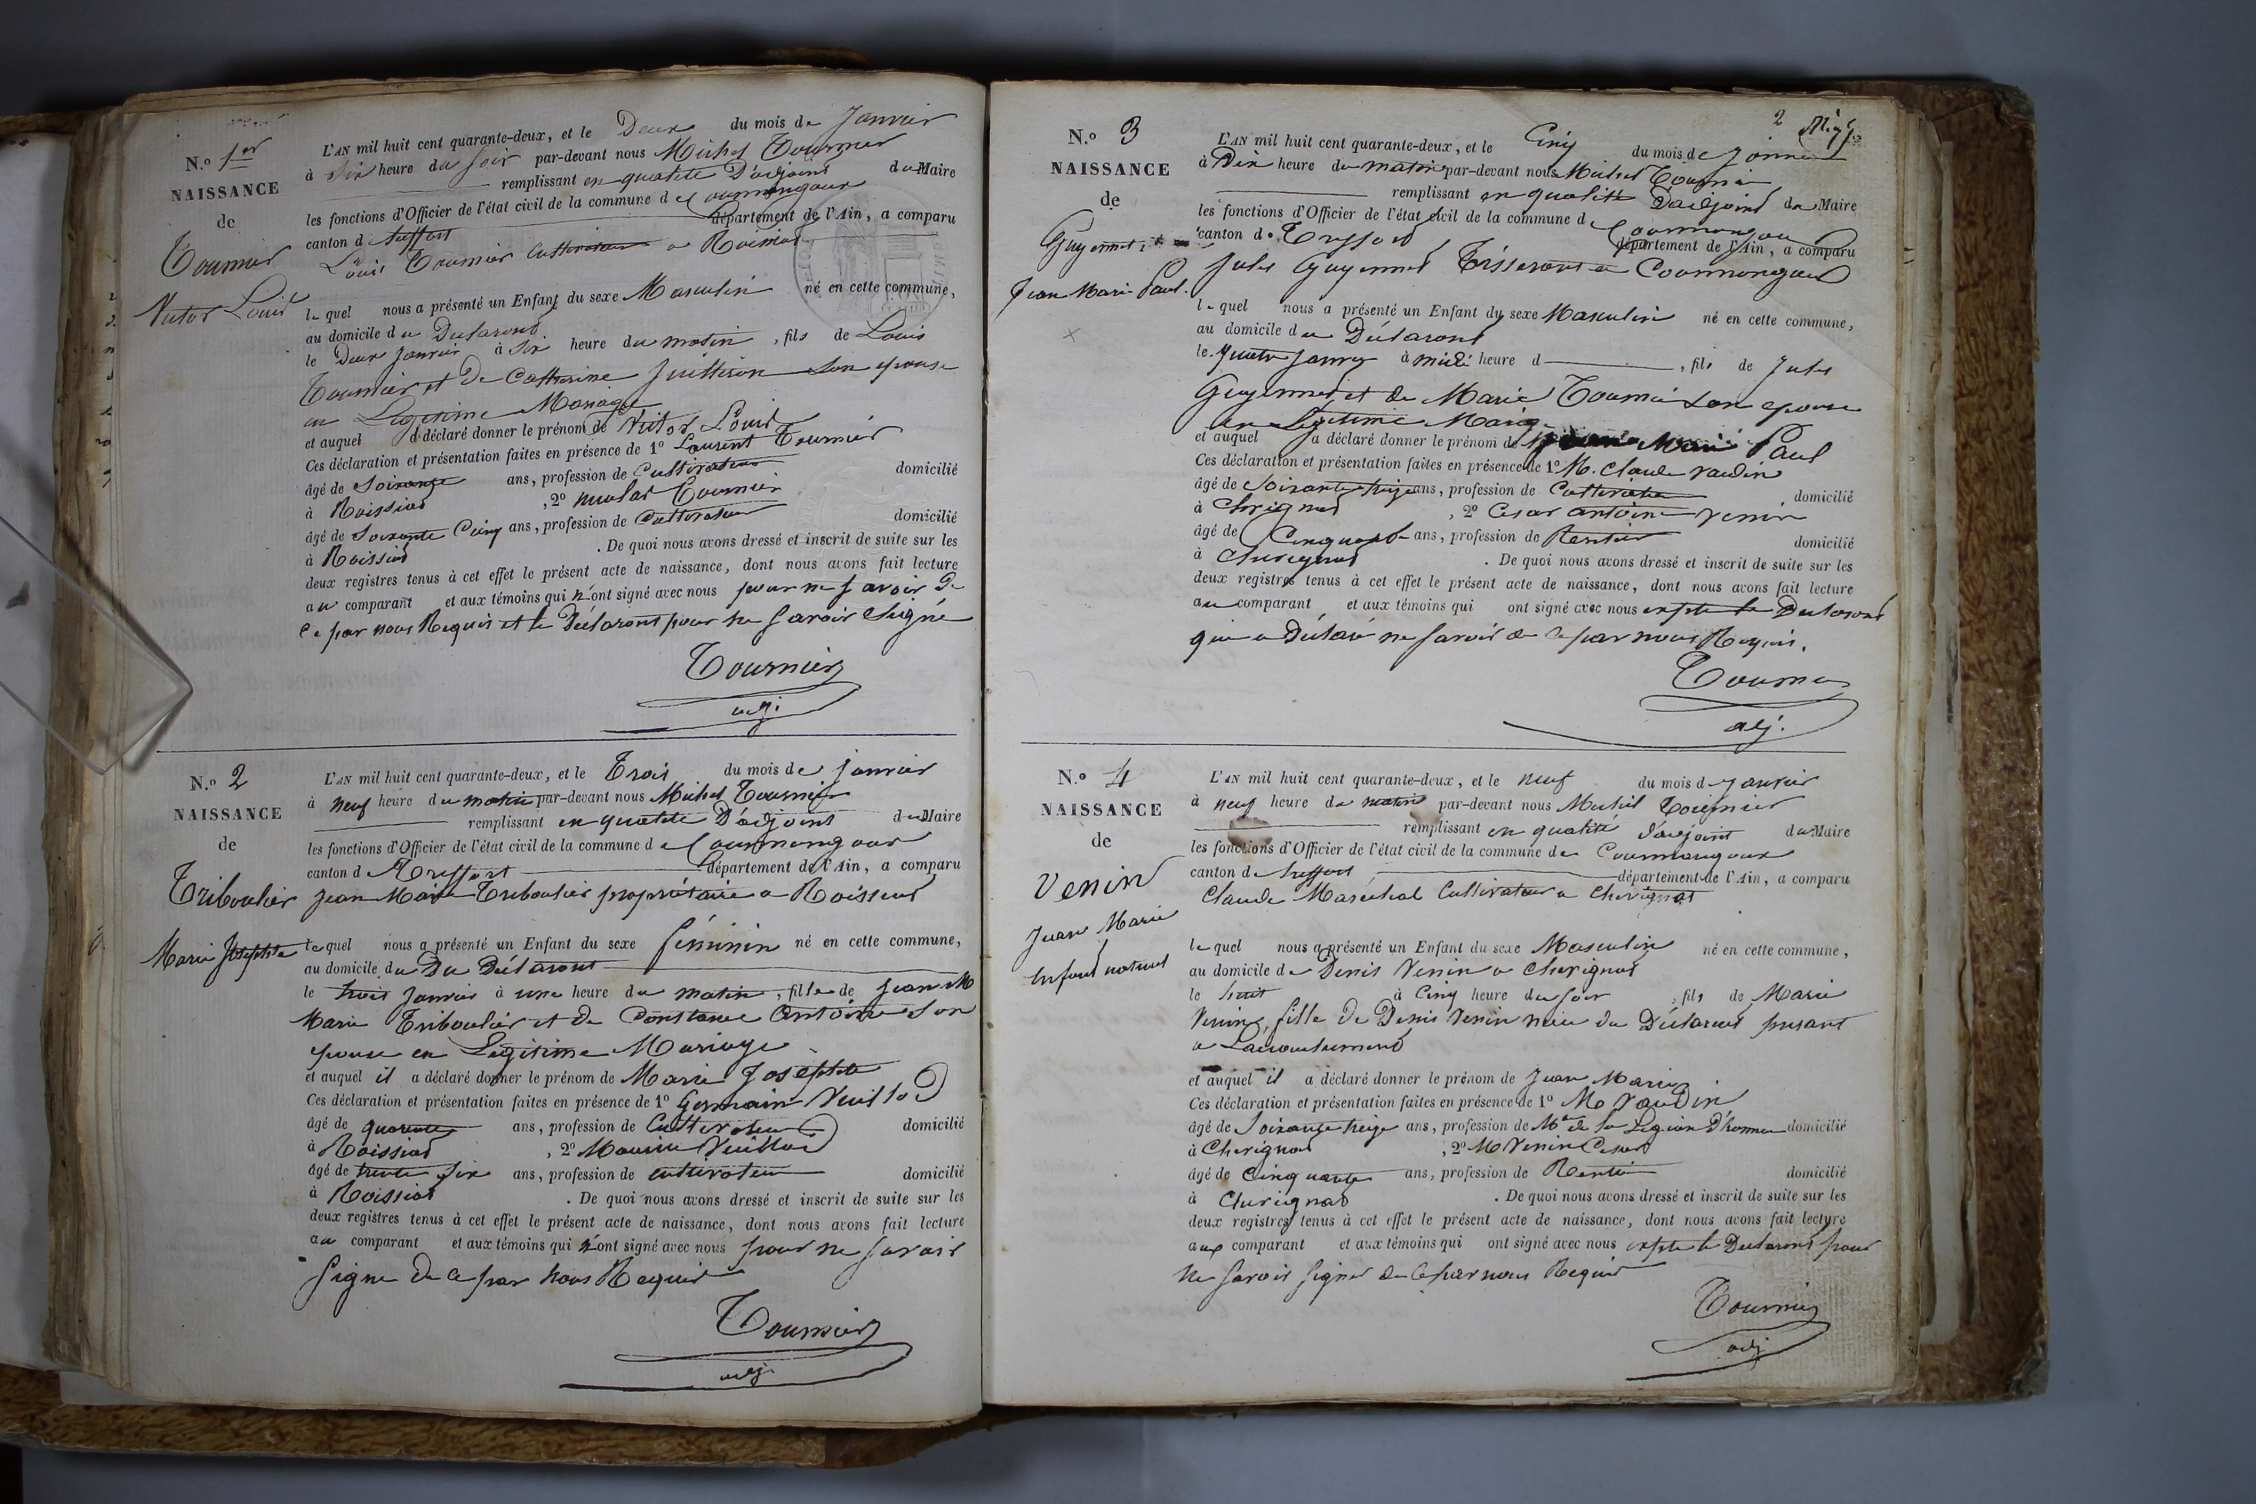 N.o 1er
NAISSANCE
de
Tournier
Victor Louis
L'AN mil huit cent quarante-deux, et le Deux du mois de Janvier
à Six heure du soir par-devant nous Michel Tournier
remplissant en qualité D'adjoint du Maire
les fonctions d'Officier de l'état civil de la commune de Courmangoux
canton d treffort département de l'Ain, a comparu
Louis Tournier Cultivateur a Roissiat
le quel nous a présenté un Enfant du sexe Masculin né en cette commune,
au domicile du Déclarant
le Deux Janvier à Six heure du matin, fils de Louis
Tournier et De Catherine son epouse
en Legitime Mariage
et auquel a déclaré donner le prénom de Victor Louis
Ces déclaration et présentation faites en présence de 1º Laurent Tournier
âgé de Soixante ans, profession de Cultivateur domicilié
à Roissiat, 2º nicolas Tournier
âgé de Soixante Cinq ans, profession de Cultivateur domicilié
à Roissiat. De quoi nous avons dressé et inscrit de suite sur les
deux registres tenus à cet effet le présent acte de naissance, dont nous avons fait lecture
au comparant et aux témoins qui n'ont signé avec nous pour ne savoir De
Ce par nous Requis et le Déclarant pour ne savoir Signé
Tournier
adj.
N.o 2
NAISSANCE
de
Triboulier
Marie Josephte
L'AN mil huit cent quarante-deux, et le Trois du mois de janvier
à neuf heure du matin par-devant nous Michel Tournier
remplissant en qualité D'adjoint du Maire
les fonctions d'Officier de l'état civil de la commune de Courmangoux
canton d Treffort département de l'Ain, a comparu
jean Marie Triboulier propriétaire a Roissiat
le quel nous a présenté un Enfant du sexe féminin né en cette commune,
au domicile du Du Déclarant
le trois janvier à une heure du matin, fille de jean M
Marie Triboulier et de Constance Antoine Son
epouse en Legitime Mariage
et auquel il a déclaré donner le prénom de Marie Josephte
Ces déclaration et présentation faites en présence de 1º Germain Vuillod
âgé de quarante ans, profession de Cultivateur domicilié
à Roissiat, 2º Maurice Vuillod
âgé de trente six ans, profession de cultivateur domicilié
à Roissiat. De quoi nous avons dressé et inscrit de suite sur les
deux registres tenus à cet effet le présent acte de naissance, dont nous avons fait lecture
au comparant et aux témoins qui n'ont signé avec nous pour ne savoir
signe de ce par nous Requis
Tournier
adj.
2
N.o 3
NAISSANCE
de
Guyennet
Jean Marie Paul.
L'AN mil huit cent quarante-deux, et le Cinq du mois de Janvier
à Dix heure du matin par-devant nous Michel Tournier
remplissant en qualité D'adjoint du Maire
les fonctions d'Officier de l'état civil de la commune de Courmangoux
canton de Treffort département de l'Ain, a comparu
Jules Guyennet Tisserant a Courmangoux
le quel nous a présenté un Enfant du sexe Masculin né en cette commune,
au domicile du Déclarant
le quatre janvier à midi heure d, fils de Jules
Guyennet et de Marie Tournier son epouse
en Legitime Mariage
et auquel a déclaré donner le prénom de Jean Marie Paul
Ces déclaration et présentation faites en présence de 1º M. Claude vaudin
âgé de Soixante treize ans, profession de Cultivateur, domicilié
à Chevignat, 2º Cesar antoine venin
âgé de Cinquante ans, profession de Rentier domicilié
à Chevignat. De quoi nous avons dressé et inscrit de suite sur les
deux registres tenus à cet effet le présent acte de naissance, dont nous avons fait lecture
au comparant et aux témoins qui ont signé avec nous excepte le Declarant
qui a Déclaré ne savoir de ce par nous Requis.
Tournier
adj.
N.o 4
NAISSANCE
de
Venin
Jean Marie
Enfant naturel
L'AN mil huit cent quarante-deux, et le neuf du mois d janvier
à neuf heure du matin par-devant nous Michel Tournier
remplissant en qualité d'adjoint du Maire
les fonctions d'Officier de l'état civil de la commune de Courmangoux
canton de treffort département de l'Ain, a comparu
Claude Maréchal Cultivateur a Chevignat
le quel nous a présenté un Enfant du sexe Masculin né en cette commune,
au domicile de Denis Venin a Chevignat
le huit à Cinq heure du soir, fils de Marie
Venin, fille de Denis Venin niéce du Déclarant présant
a Laccouchement
et auquel il a déclaré donner le prénom de Jean Marie
Ces déclaration et présentation faites en présence de 1º M Vaudin
âgé de Soixante treize ans, profession de Mre de la Legion D'honneur domicilié
à Chevignat, 2º M Venin Cesar
âgé de Cinquante ans, profession de Rentier domicilié
à Chevignat. De quoi nous avons dressé et inscrit de suite sur les
deux registres tenus à cet effet le présent acte de naissance, dont nous avons fait lecture
aux comparant et aux témoins qui ont signé avec nous excepte le Declarant pour
ne savoir signer de ce par nous Requis
Tournier
adj